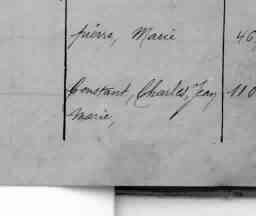 pierre, Marie 46
Constant, Charles, Jean 110
Marie,